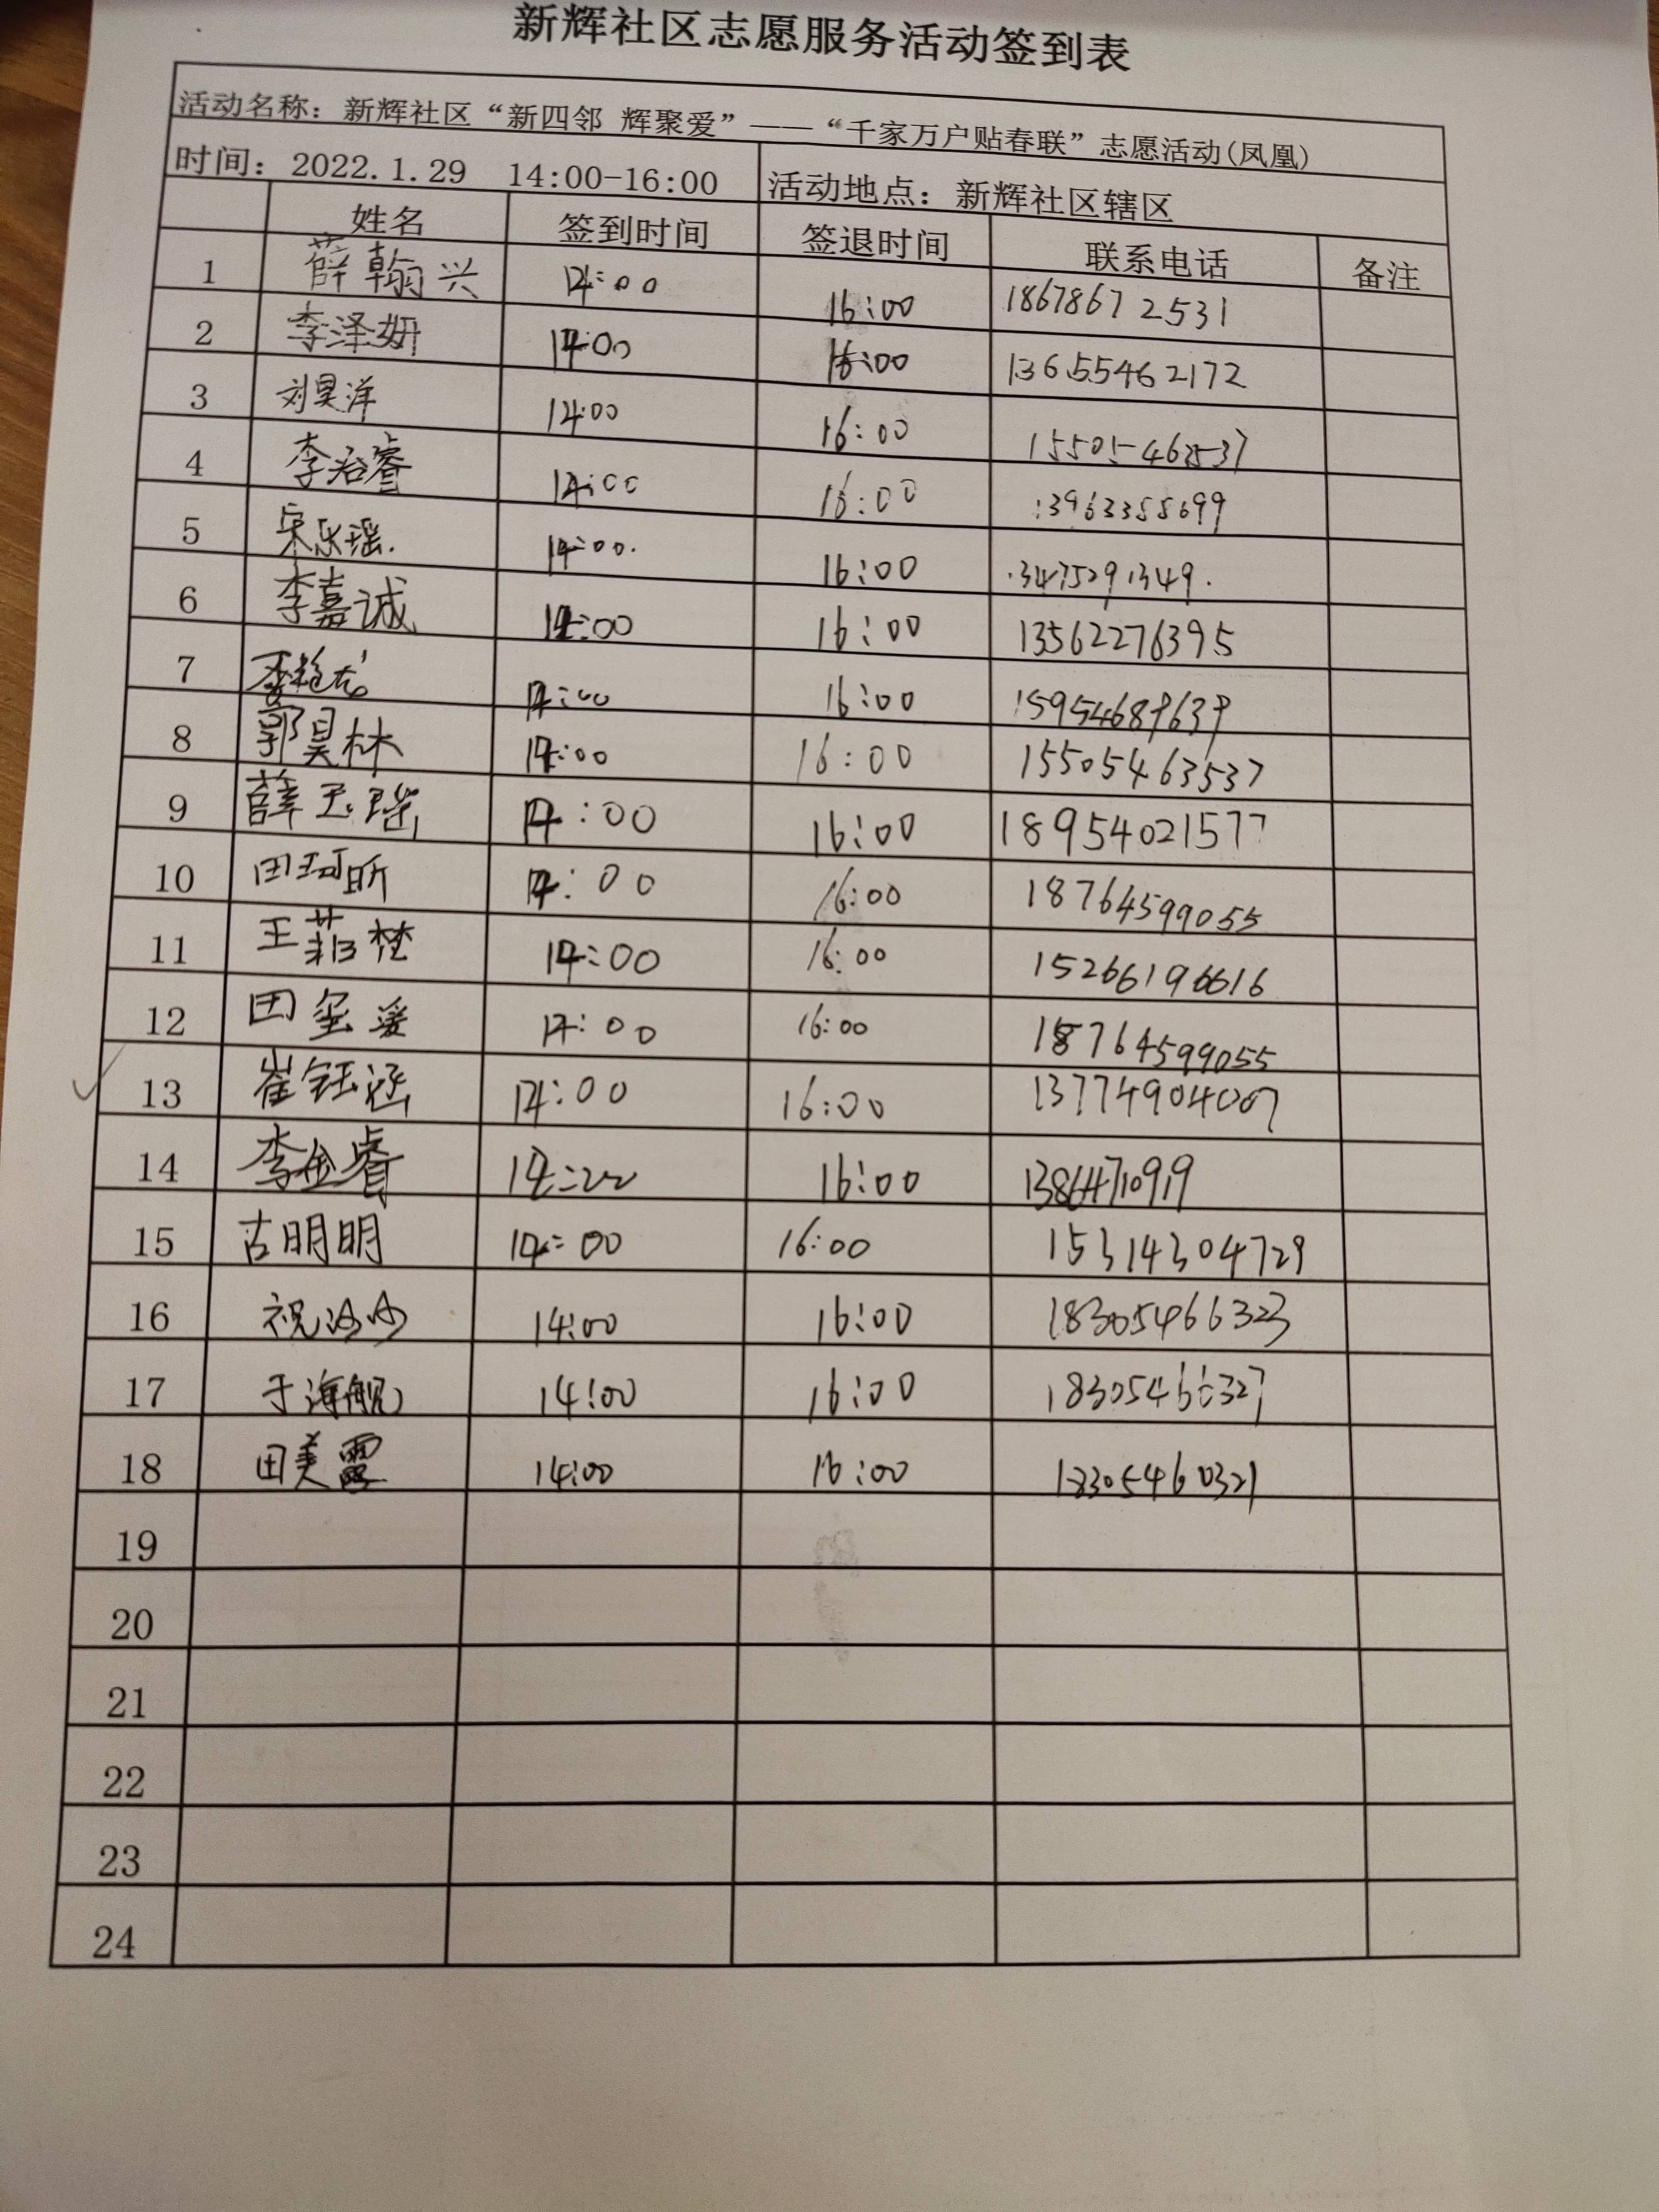 新辉社区志愿服务活动签到表
活动名称：新辉社区“新四邻 辉聚爱”——“千家万户贴春联”志愿活动(凤凰)
时间：2022.1.29 14:00-16:00 活动地点：新辉社区辖区
姓名 签到时间 签退时间 联系电话 备注
1 薛翰兴 14:00 16:00 18678672531
2 李泽妍 14:00 16:00 13655462172
3 刘昊洋 14:00 16:00
4 14:00 16:00 13963355699
5 宋乐瑶. 14:00. 16:00 13475291349.
6 李嘉诚 14:00 16:00 13562276395
7 14:00 16:00 15954689639
8 郭昊林 14:00 16:00 15505463537
9 薛玉瑶 14:00 16:00 18954021577
10 田珂昕 14:00 16:00 18764599055
11 王 14:00 16:00 15266196616
12 田玺湲 14:00 16:00 18764599055
13 崔钰涵 14:00 16:00 13774904007
14 李金睿 16:00
15 古明明 14:00 16:00 15314304729
16 祝沙沙 14:00 16:00 18305466323
17 于海舰 14:00 16:00 18305466327
18 田美露 14:00 16:00 18305460321
19
20
21
22
23
24